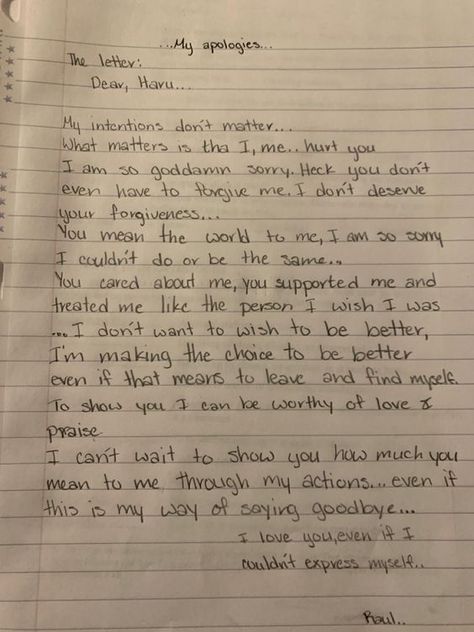 ...My apologies...
The letter:
Dear, Haru...
My intentions don't matter...
What matters is tha I, me.. hurt you
I am so goddamn sorry. Heck you don't
even have to forgive me. I don't deserve
your forgiveness...
You mean the world to me, I am so sorry
I couldn't do or be the same...
You cared about me, you supported me and
treated me like the person I wish I was
... I don't want to wish to be better,
I'm making the choice to be better
even if that means to leave and find myself.
To show you I can be worthy of love &
praise
I can't wait to show you how much you
mean to me through my actions... even if
this is my way of saying goodbye...
I love you, even if I
couldn't express myself..
Raul..